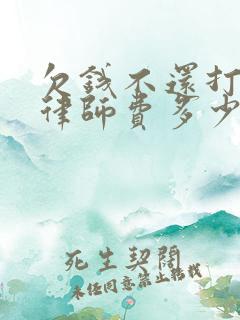 欠錢不還打
律師費多少
死生契闊
未经同意禁止搭载